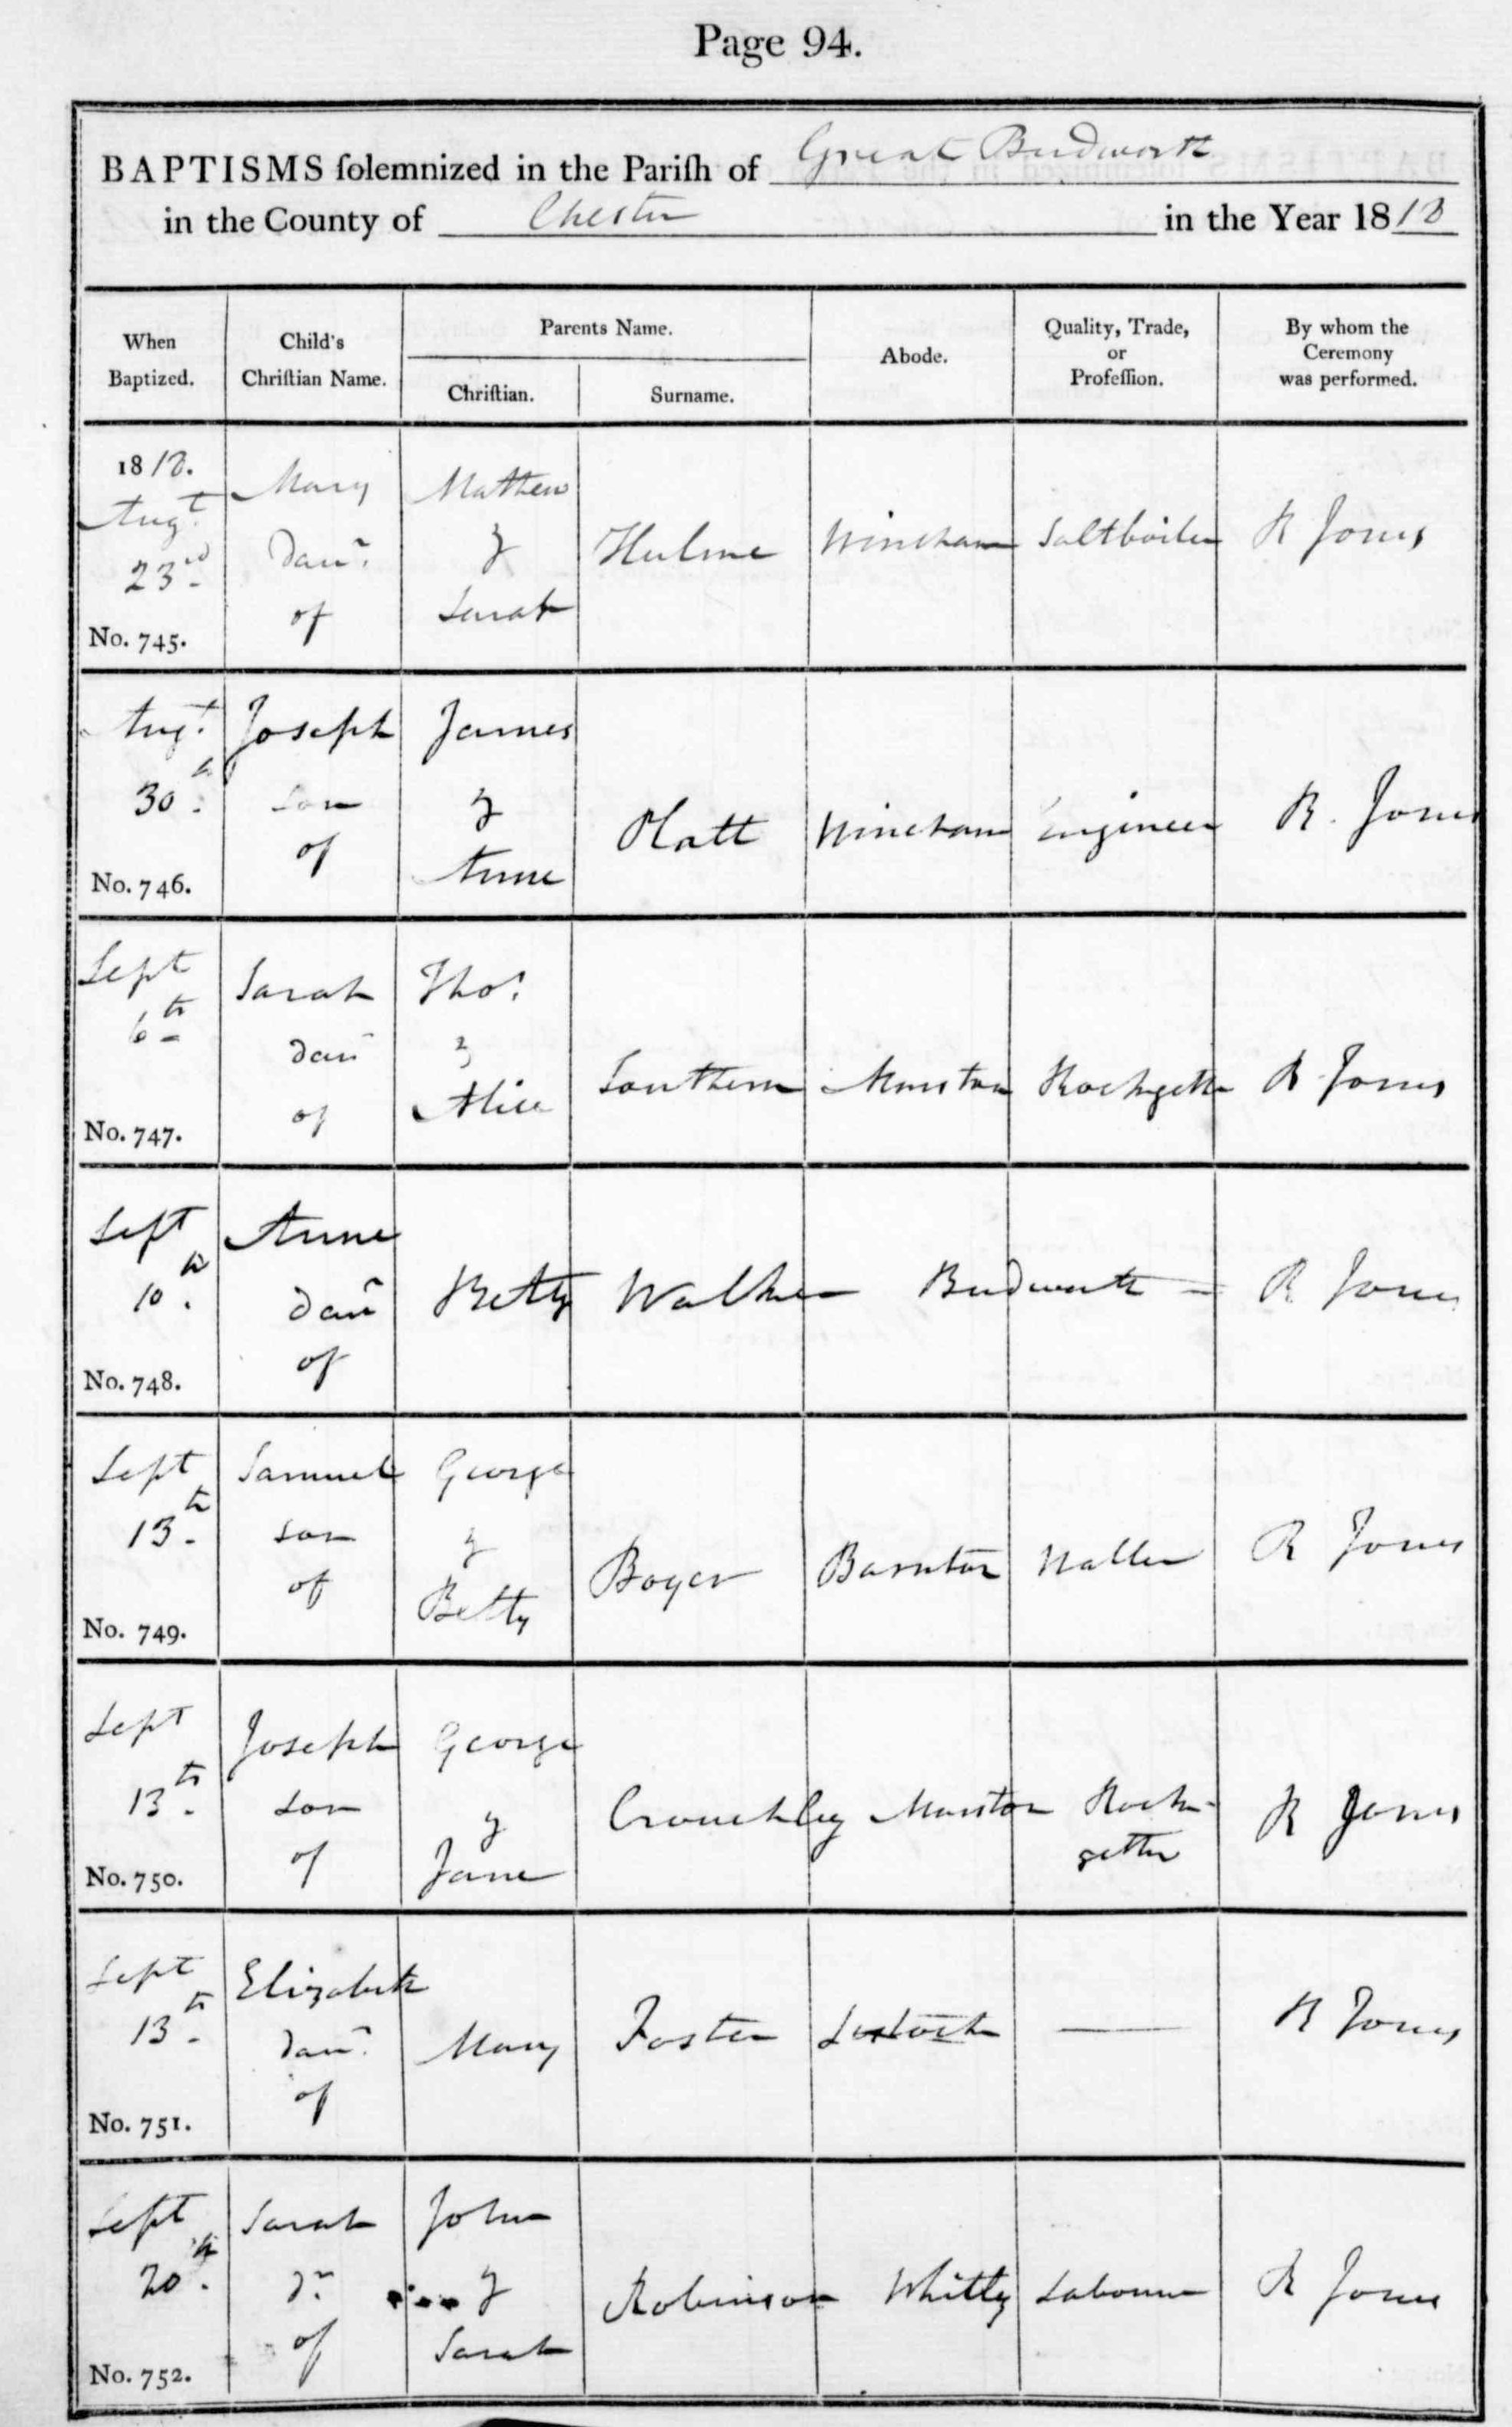 Page 94.
BAPTISMS ſolemnized in the Pariſh of Great Budworth
in the County of Chester in the Year 1818
When Baptized.
Child's Chriſtian Name.
Parents Name.
Chriſtian.
Surname.
Abode.
Quality, Trade, or Profeſſion.
By whom the Ceremony was performed.
1818.
Augt
23rd
No. 745.
Mary
Daur
of
Mathew
&
Sarah
Hulme
Wincham
Saltboiler
R Jones
Augt
30th
No. 746.
Joseph
son
of
James
&
Anne
Platt
Wincham
Engineer
R. Jones
Sept
6th
No. 747.
Sarah
Daur
of
Thos
&
Alice
Southern
Marston
Rockgetter
R Jones
Sept
10th
No. 748.
Anne
Daur
of
Betty
Walker
Budworth =
R Jones
Sept
13th
No. 749.
Samuel
son
of
George
&
Betty
Boyer
Barnton
Waller
R Jones
Sept
13th
No. 750.
Joseph
son
of
George
&
Jane
Crouchley
Marston
Rock-
getter
R Jones
Sept
13th
No. 751.
Elizabeth
Daur
of
Mary
Foster
Lostock
—
R Jones
Sept
20th
No. 752.
Sarah
Dr
of
John
&
Sarah
Robinson
Whitly
Labourer
R Jones